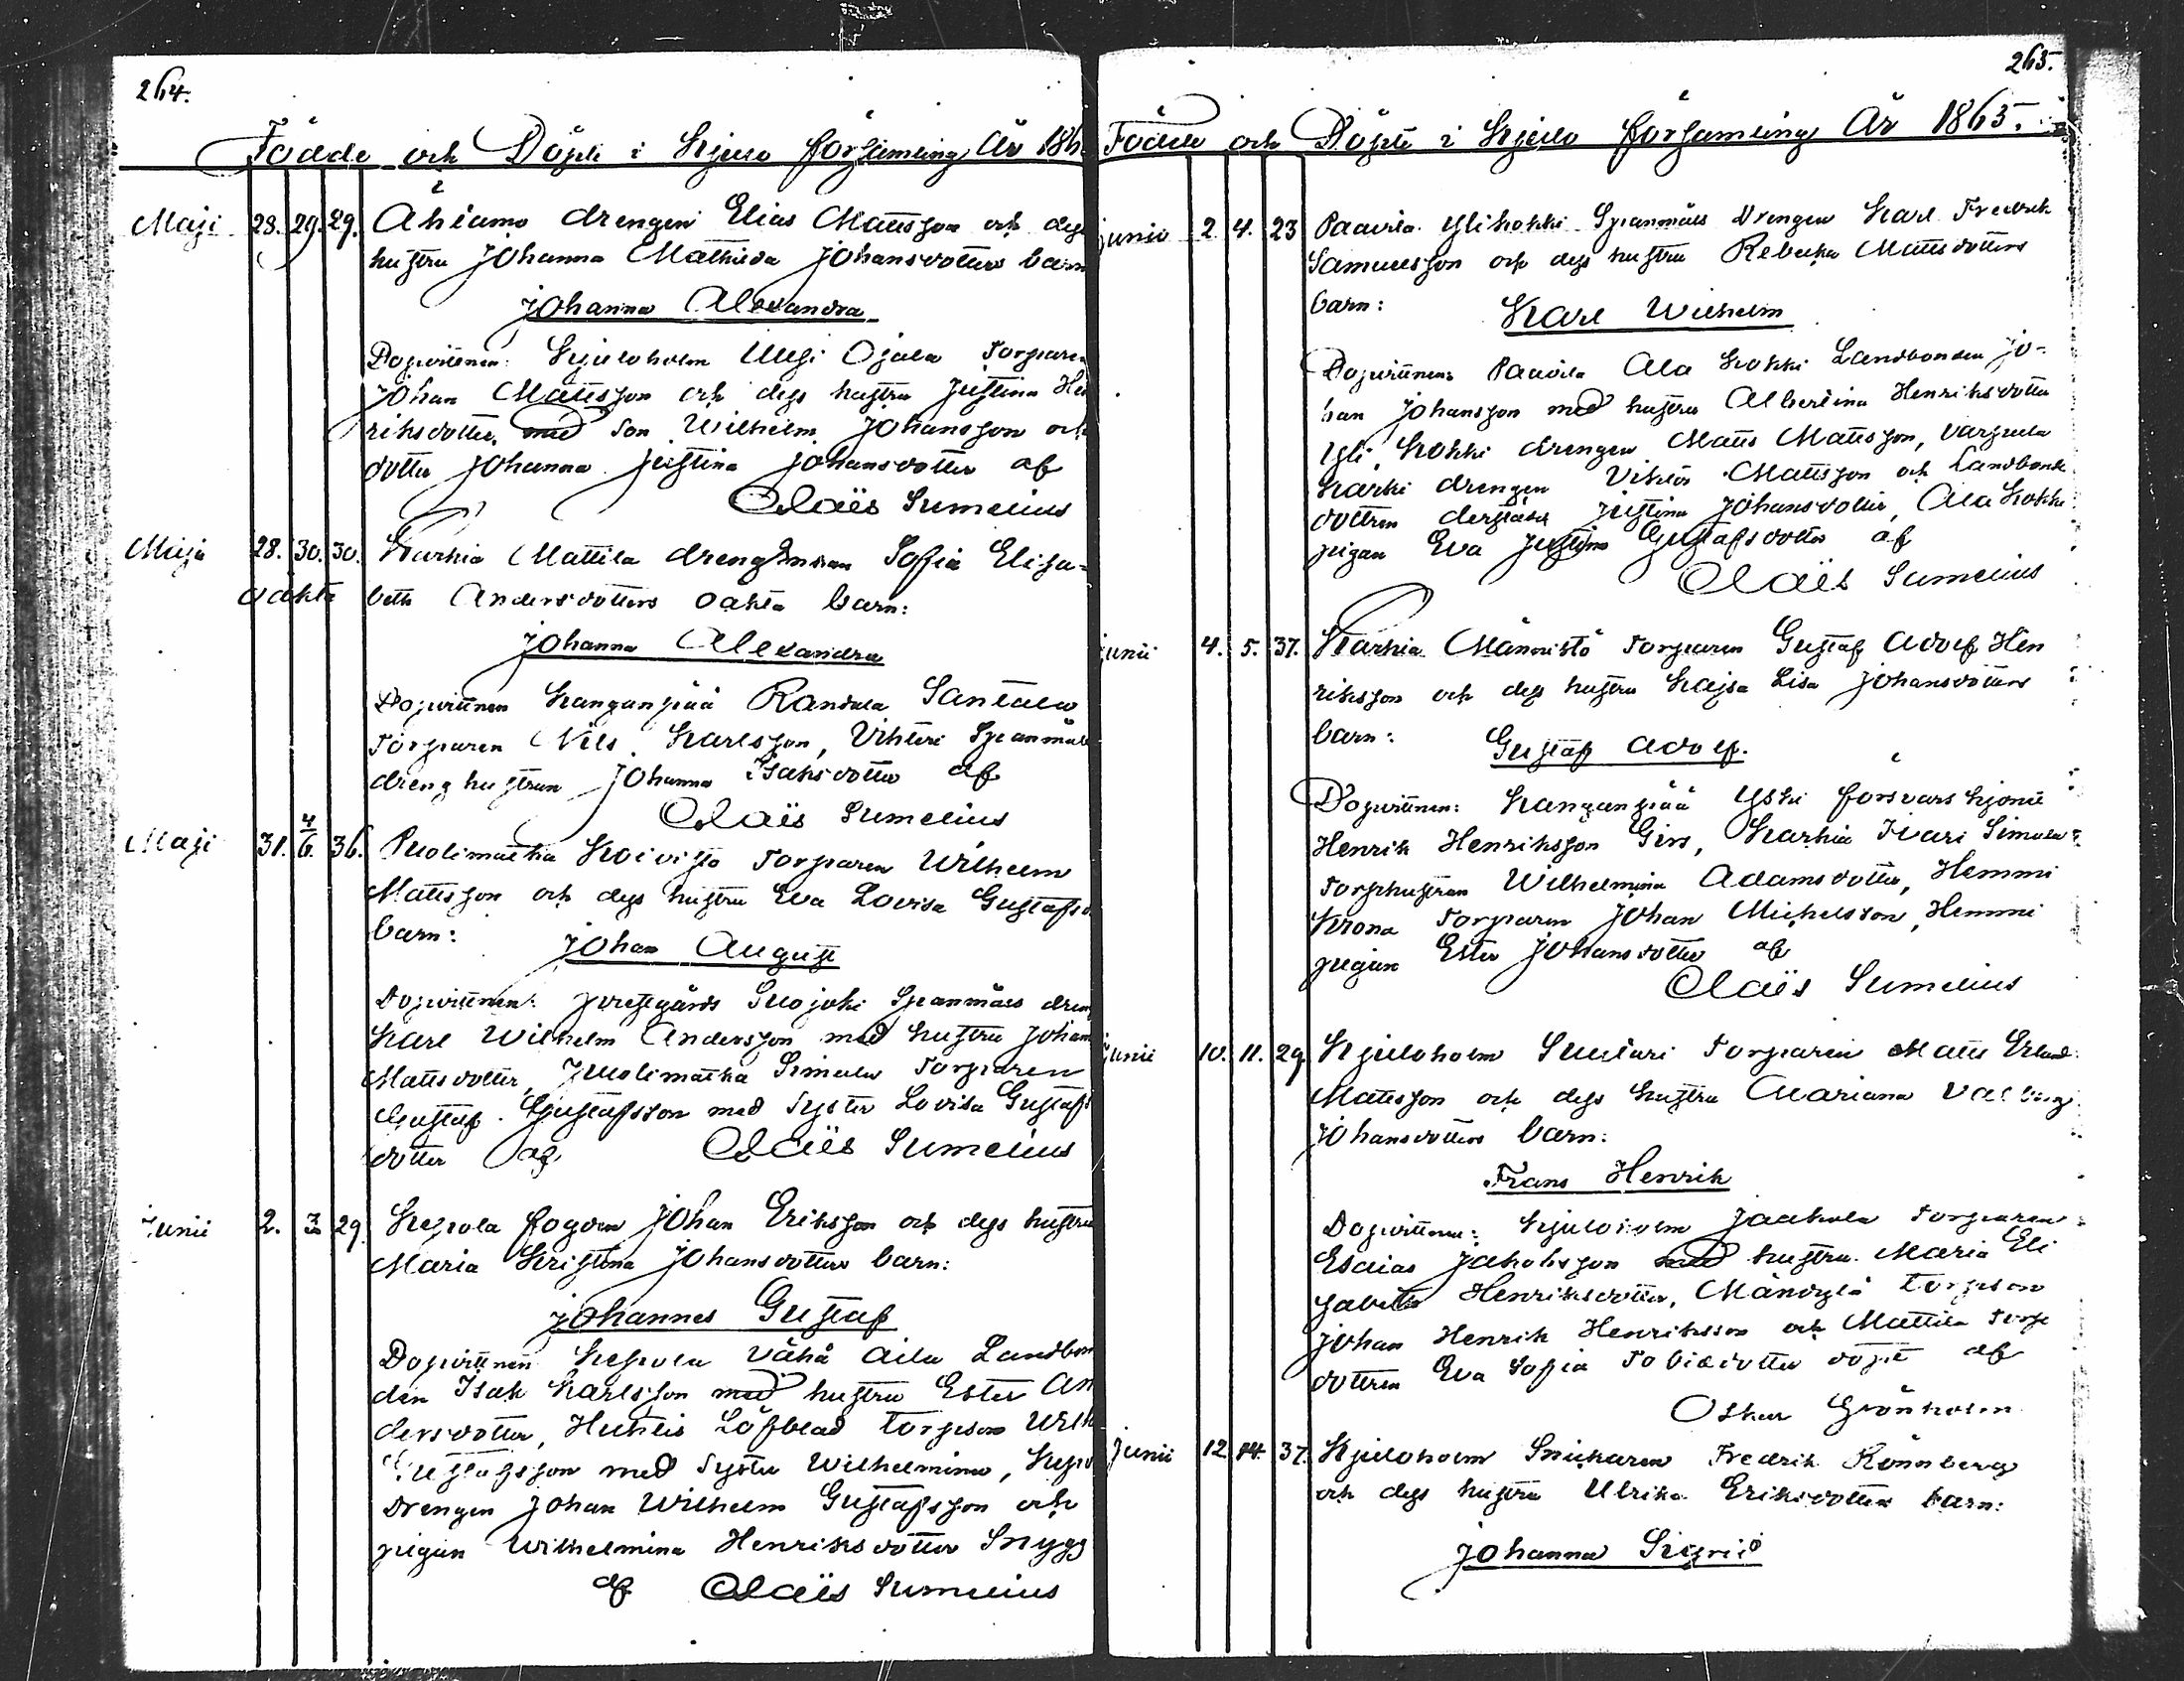 264.
Födde och Döpte i Kjulo församling År 186
Maji 28. 29. 29. Ahlamo drengen Elias Mattsson och dess
hustru Johanna Mathilda Johansdotters barn
Johanna Alexandra
Dopvittnen: Kjuloholm Ojala Torparen
Johan Mattsson och dess hustru Justina Hen
riksdotter, med Son Wilhelm Johansson och
dotter Johanna Justina Johansdotter af
Claës Sumelius
Maji 28. 30. 30. Karhia Mattila drengenkan Sofia Elisa=
oäkta beth Andersdotters oäkta barn:
Johanna Alexandra
Dopvittnen Kanganpää Randala Santala
Torparen Nils Karlsson, Vihteri Spanmåls
dreng hustrun Johanna Isaksdotter af
Claës Sumelius
Maji 31. 4/6. 36. Puolimatka Koivisto Torparen Wilhelm
Mattsson och dess hustru Eva Lovisa Gustafsd
barn: Johan August
Dopvittnen: Prestgårds Suojoki Spanmåls dren
Karl Wilhelm Andersson med hustru Johan
Mattsdotter, Puolimatka Simula Torparen
Gustaf Gustafsson med Syster Lovisa Gustafs
dotter af Claës Sumelius
Junii 2. 3 29. Kepola fogden Johan Eriksson och dess hustru
Maria Kristina Johansdotters barn:
Johannes Gustaf
Dopvittnen Kepola Vähä Aila Landbon
den Isak Karlsson med hustru Ester An
dersdotter, Huhtis Löfblad torpson Wilh
Gustafsson med Syster Wilhelmina, Kepo
Drengen Johan Wilhelm Gustafsson och
pigan Wilhelmina Henriksdotter Snygg
af Claës Sumelius
265.
Födde och Döpte i Kjulo församling År 1865.
Junii 2. 4. 23 Paavila Ylikokki Spanmåls Drengen Karl Fredrik
Samuelsson och dess hustru Rebecka Mattsdotters
barn: Karl Wilhelm
Dopvittnen: Paavila Ala Kokki Landbonden Jo=
han Johansson med hustru Albertina Henriksdotter
Yli Kokki drengen Matts Mattsson, Varpula
Karki drengen Viktor Mattsson och Landbonde
dottren derstädes Justina Johansdotter, Ala Kokki
pigan Eva Justina Gustafsdotter af
Claës Sumelius
Junii 4. 5. 37. Karhia Männistö Torparen Gustaf Adolf Hen
riksson och dess hustru Kajsa Lisa Johansdotters
barn: Gustaf Adolf.
Dopvittnen: Kanganpää Yski försvars hjonit
Henrik Henriksson Girs, Karhia Isari Simula
Torphustrun Wilhelmina Adamsdotter, Hemmi
Krona Torparen Johan Michelsson, Hemmi
pigan Ester Johansdotter af
Claës Sumelius
Junii 10. 11. 29. Kjuloholm Suutari Torparen Matts Erland
Mattsson och dess hustru Mariana Valborg
Johansdotters barn:
Frans Henrik
Dopvittnen: Kjuloholm Jaakola Torparen
Esaias Jakobsson med hustru Maria Eli
sabeth Henriksdotter, Mändylä torpson
Johan Henrik Henriksson och Mattila Torp
dottren Eva Sofia Tobiedotter döpt af
Oskar Grönholm
Junii 12. 14. 37. Kjuloholm Snickaren Fredrik Rönnberg
och dess hustru Ulrika Eriksdotters barn:
Johanna Sigrid